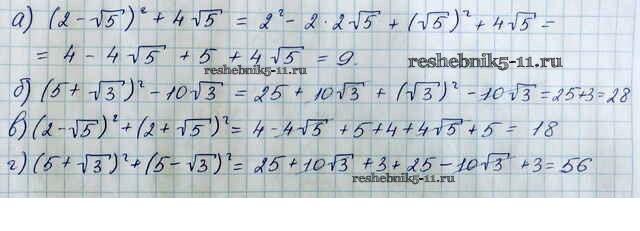 а) (2 - √5)² + 4√5 = 2² - 2 · 2√5 + (√5)² + 4√5 =
= 4 - 4√5 + 5 + 4√5 = 9.
reshebnik5-11.ru
reshebnik5-11.ru
б) (5 + √3)² - 10√3 = 25 + 10√3 + (√3)² - 10√3 = 25+3 = 28
в) (2 - √5)² + (2 + √5)² = 4 - 4√5 + 5 + 4 + 4√5 + 5 = 18
г) (5 + √3)² + (5 - √3)² = 25 + 10√3 + 3 + 25 - 10√3 + 3 = 56
reshebnik5-11.ru